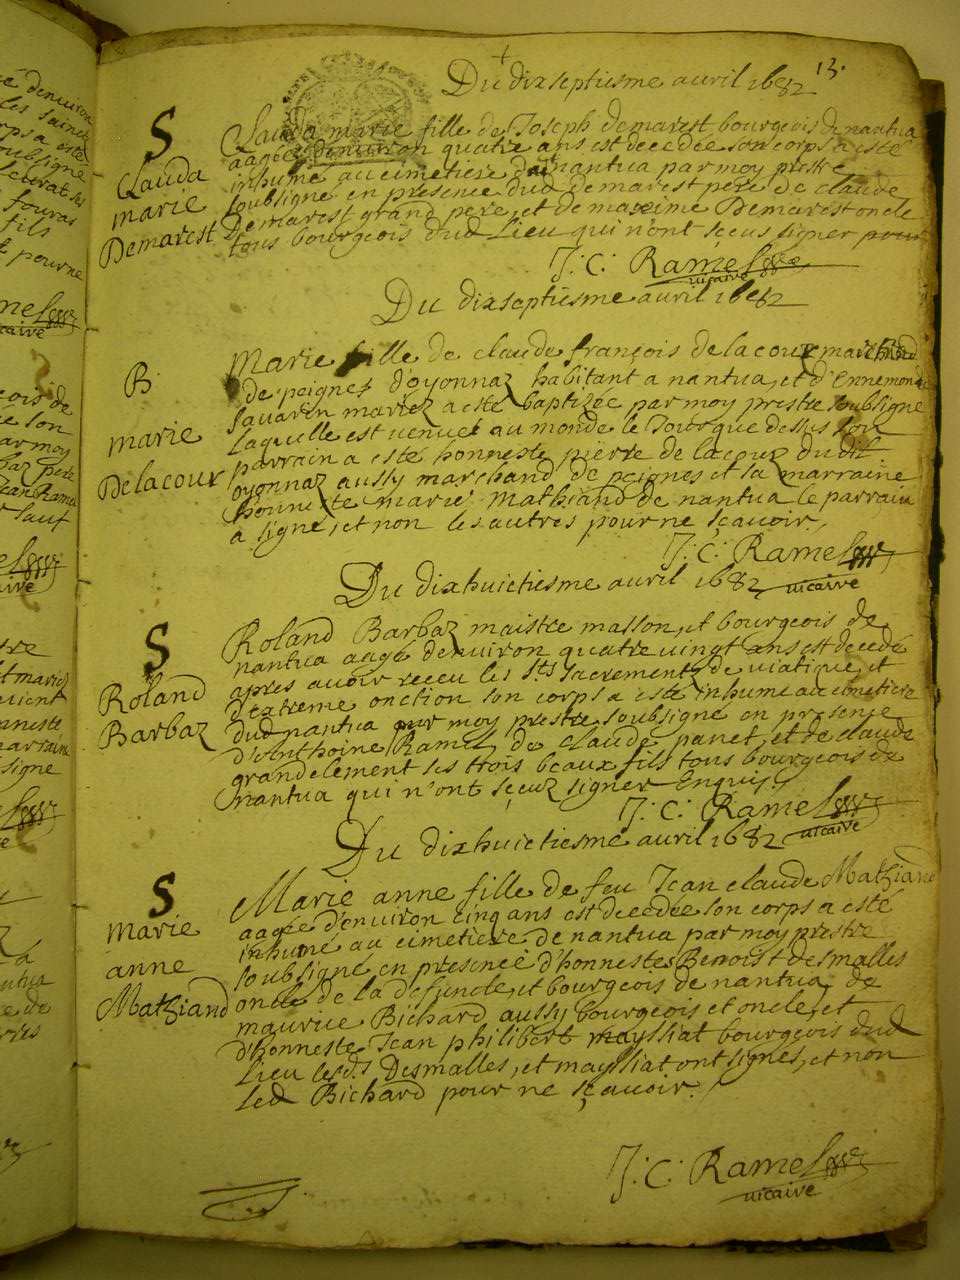 13.
Du dixseptiesme avril 1682
S
Clauda
marie
Demarest
Clauda marie fille de Joseph demarest bourgeois de nantua
aagée denuiron quatre ans est decedée son corps a esté
inhumé au cimetiere de nantua par moy prestre
soubsigné en presence dud demarest pere de claude
Demarest grand pere, et de maxime Demarest oncle
tous bourgeois dud Lieu qui nont sceus signer pour
J: C: Ramel
vicaire
Du dixseptiesme avril 1682
B
marie
Delacour
Marie fille de claude françois delacour marchand
de peignez d'oyonnaz habitant a nantua, et d'Ennemonde
sauarin mariez a esté baptizée par moy prestre soubsigné
laquelle est venue au monde le Jour que dessus son
parrain a esté honneste pierre de lacour dudit
oyonnaz aussy marchand de peignes et sa marraine
honneste marie mathiand de nantua le parrain
a signé, et non les autres pour ne sçavoir,
J: C: Ramel
vicaire
Du dixhuictiesme avril 1682
S
Roland
Barbaz
Roland Barbaz maistre masson, et bourgeois de
nantua aagé denuiron quatre vingt ans est decedé
apres avoir receu les Sts sacrementz de viatique, et
d'extreme onction son corps a esté inhumé au cimetiere
dud nantua par moy prestre soubsigné en presense
d'Anthoine Ramel, de claude panet, et de claude
grandclement ses trois beaux fils tous bourgeois de
nantua qui n'ont sçeuz signer Enquis,
J: C: Ramel
vicaire
Du dixhuictiesme avril 1682
S
marie
anne
Mathiand
Marie anne fille de feu Jean claude Mathiand
aagée d'enuiron cinq ans est decedée son corps a esté
inhumé au cimetiere de nantua par moy prestre
soubsigné en presence d'honnestes Benoist desmalles
oncle de la defuncte, et bourgeois de nantua, de
maurice Bichard aussy bourgeois et oncle, et
d'honneste Jean philibert mayssiat bourgeois dud
Lieu lesds Desmalles, et mayssiat ont signés, et non
led Bichard pour ne sçavoir.
J: C: Ramel
vicaire